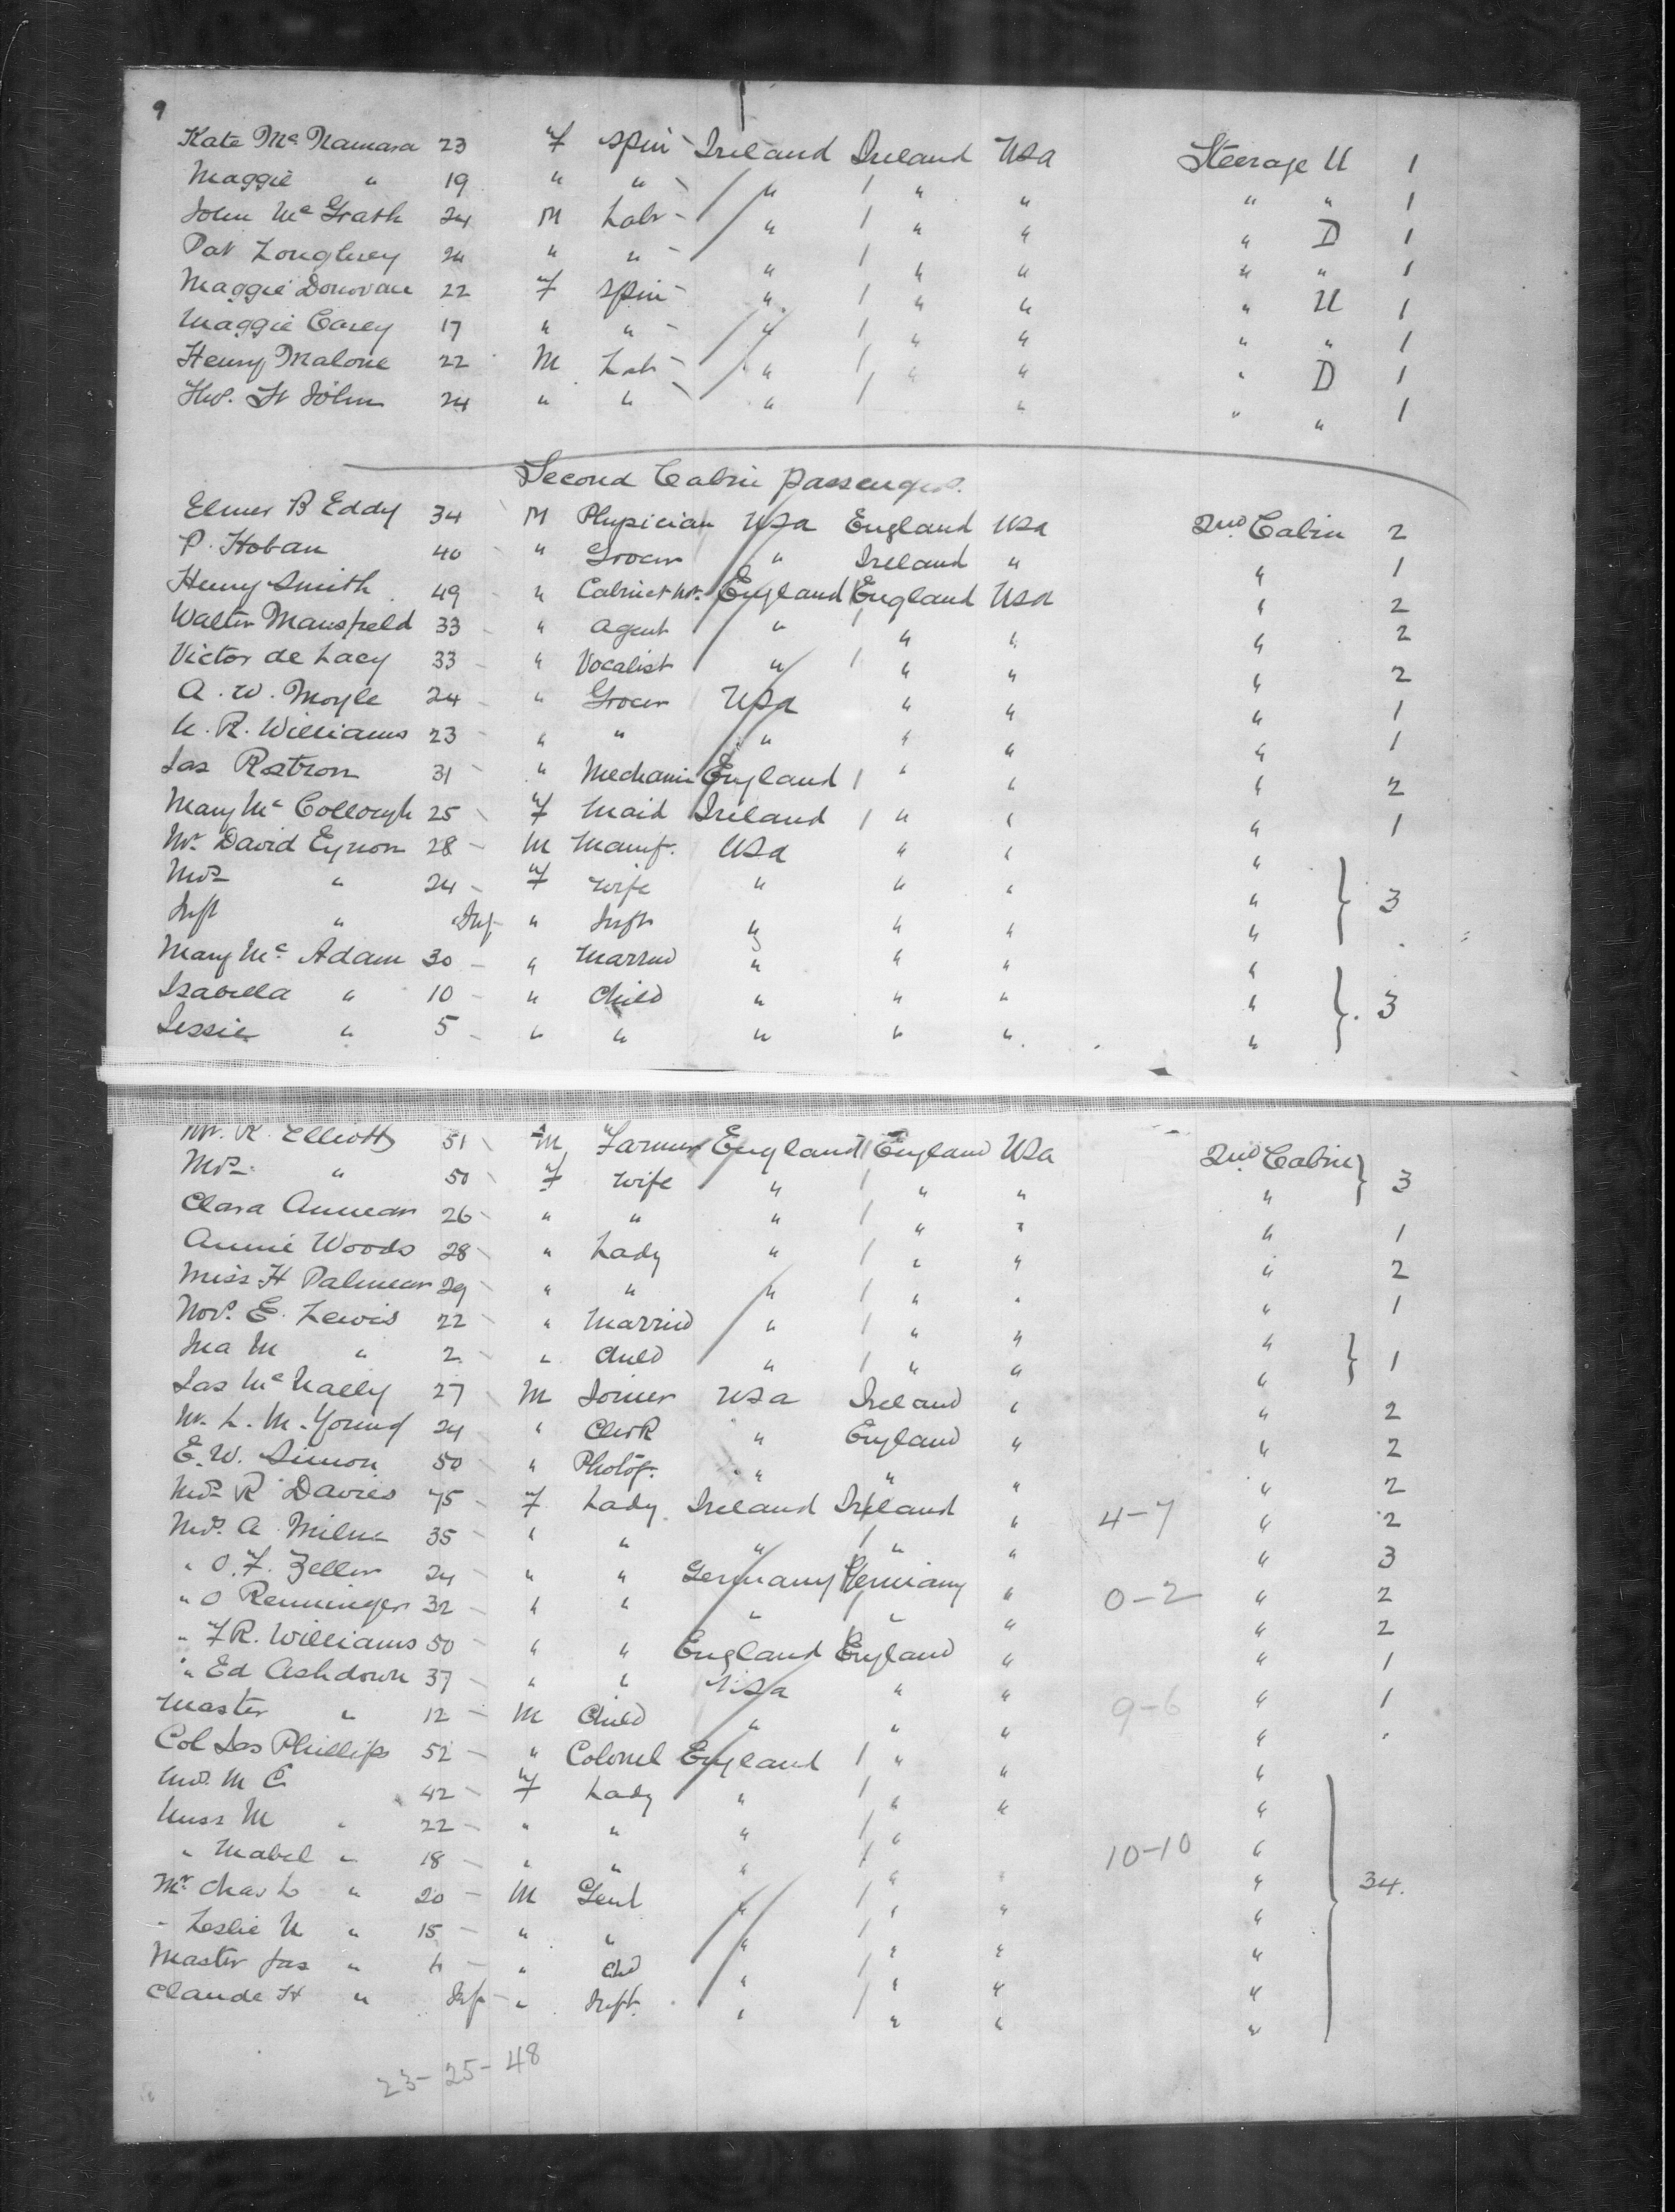 9
Kate Mc Namara 23 f Spin Ireland Ireland USa Steerage U 1
Maggie " 19 " " " " " " " 1
John Mc Grath 24 M Labr " " " " D 1
Pat Loughrey 24 " " " " " " " 1
Maggie Donovan 22 f Spin " " " " U 1
Maggie Carey 17 " " " " " " " 1
Henry Malone 22 M Lab " " " " D 1
Thos. St John 24 " " " " " " 1
Second Cabin Passengers.
Elmer B Eddy 34 M Physician USa England USa 2nd Cabin 2
P. Hoban 40 " Grocer " Ireland " " 1
Henry Smith 49 " Cabinet Mr. England England USa " 2
Walter Mansfield 33 " agent " " " " 2
Victor de Lacy 33 " Vocalist " " " " 2
A. W. Moyle 24 " Grocer USa " " " 1
W. R. Williams 23 " " " " " " 1
Jas Rostron 31 " Mechanic England " " " 2
Mary Mc Collough 25 f Maid Ireland " " " 1
Mr. David Eynon 28 M Manf. USa " " "
Mrs " 24 f Wife " " " " 3
Inft " Inf " Inft " " " "
Mary Mc Adam 30 " Married " " " "
Isabella " 10 " Child " " " " 3
Jessie " 5 " " " " " "
Mr. R. Elliott 51 M Farmer England England USa 2nd Cabin
Mrs. " 50 f Wife " " " " 3
Clara Annear 26 " " " " " " 1
Annie Woods 28 " Lady " " " " 2
Miss H Palmear 29 " " " " " " 1
Mrs. E. Lewis 22 " Married " " " "
Ina M " 2 " Child " " " " 1
Jas Mc Nally 27 M Joiner USa Ireland " " 2
Mr. L. M. Young 24 " Clerk " England " " 2
E. W. Simon 50 " Photog. " " " " 2
Mrs R Davies 45 f Lady Ireland Ireland " 4-7 " 2
Mrs. A Milne 35 " " " " " " 3
" O. F. Zeller 24 " " Germany Germany " 0-2 " 2
" O Renninger 32 " " " " " " 2
" F R. Williams 50 " " England England " " 1
" Ed Ashdown 37 " " USa " " 9-6 " 1
Master " 12 M Child " " " "
Col Jas Phillips 52 " Colonel England " " "
Mrs. M C. 42 f Lady " " " "
Miss M " 22 " " " " "
" Mabel " 18 " " " " 10-10 "
Mr. Chas L " 20 M Gent " " " " 34.
" Leslie N " 15 " " " " " "
Master Jas " 4 " Chd " " " "
Claude H " Inf " Inft. " " " "
23-25-48